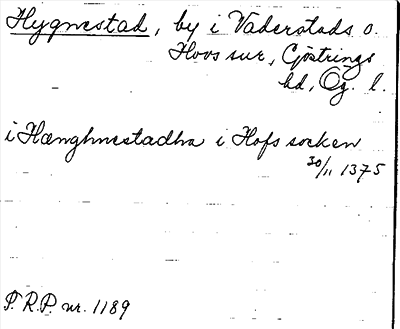 Hygnestad, by i Väderstads o.
Hovs snr, Göstrings
hd, Ög. l.
i Hænghnestadha i Hofs socken
30/11 1375
P.R.P. nr. 1189